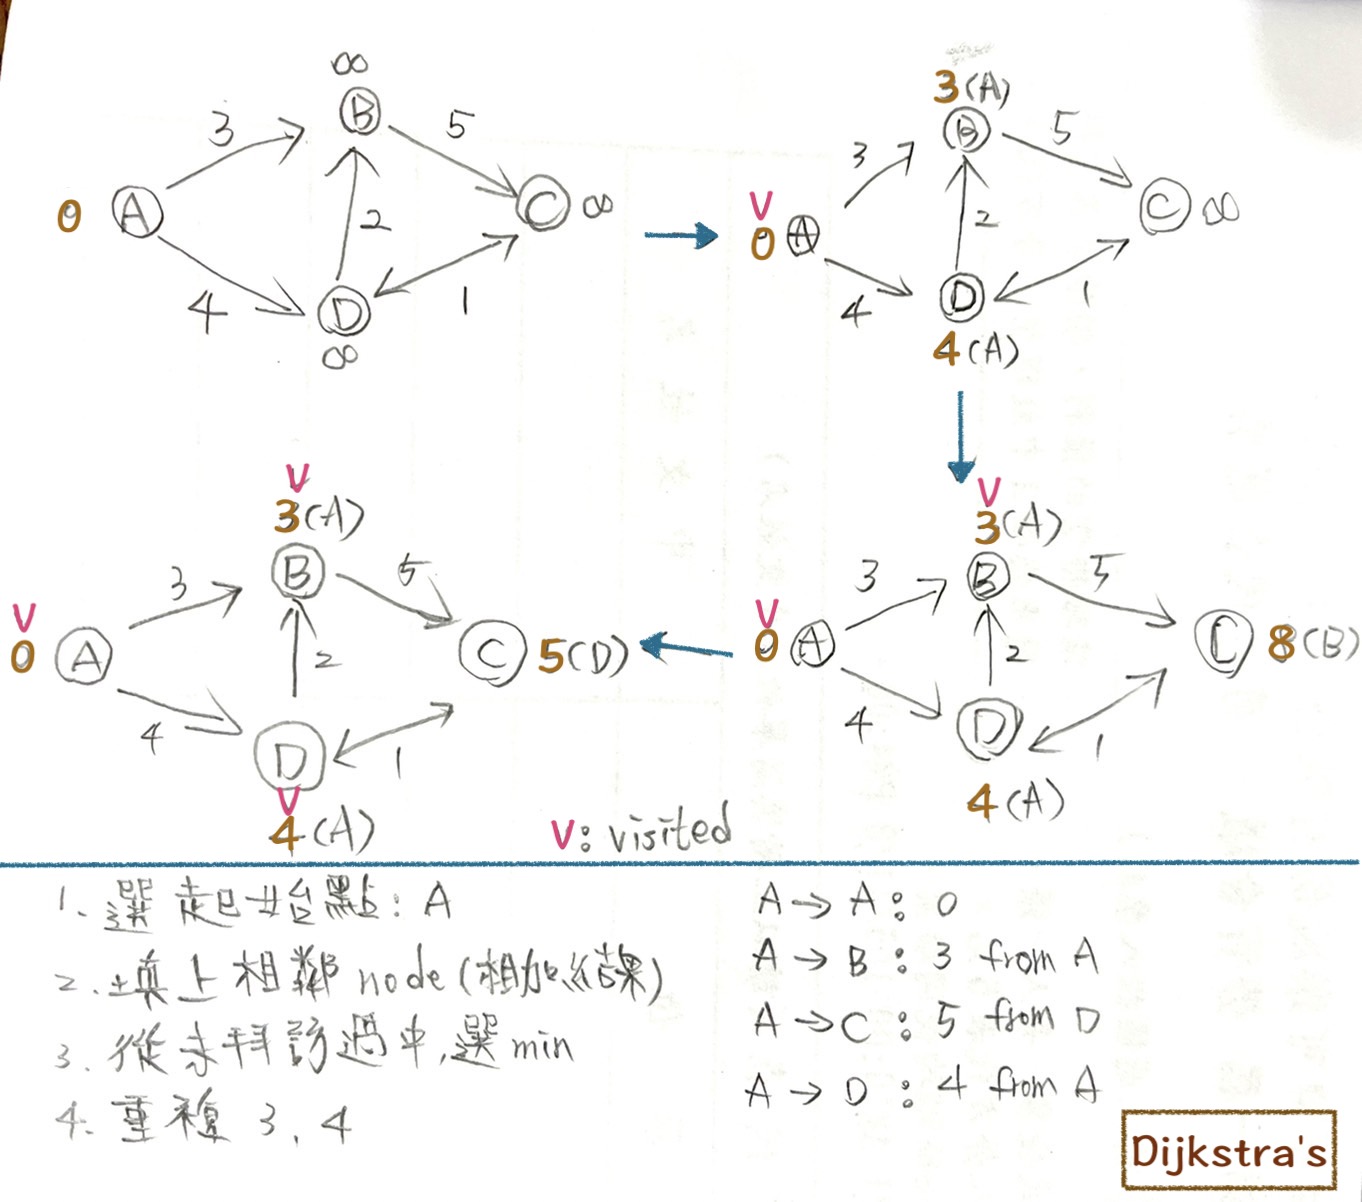 ∞
3
B
5
0
A
2
C
∞
4
D
1
∞
3(A)
B
5
3
V
0
A
2
C
∞
4
D
1
4(A)
V
3(A)
B
5
3
V
0
A
2
C
8(B)
4
D
1
4(A)
V
3(A)
B
5
3
V
0
A
2
C
5(D)
4
D
1
V
4(A)
V: visited
1. 選起始點: A
2. 填上相鄰node(相加結果)
3. 從未拜訪過中,選min
4. 重複 3, 4
A→A: 0
A→B: 3 from A
A→C: 5 from D
A→D: 4 from A
Dijkstra's